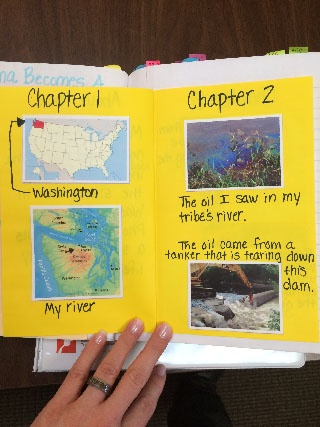 na Becomes A
Chapter 1
Washington
My river
Chapter 2
The oil I saw in my
tribe's river.
The oil came from a
tanker that is tearing down
this
dam.